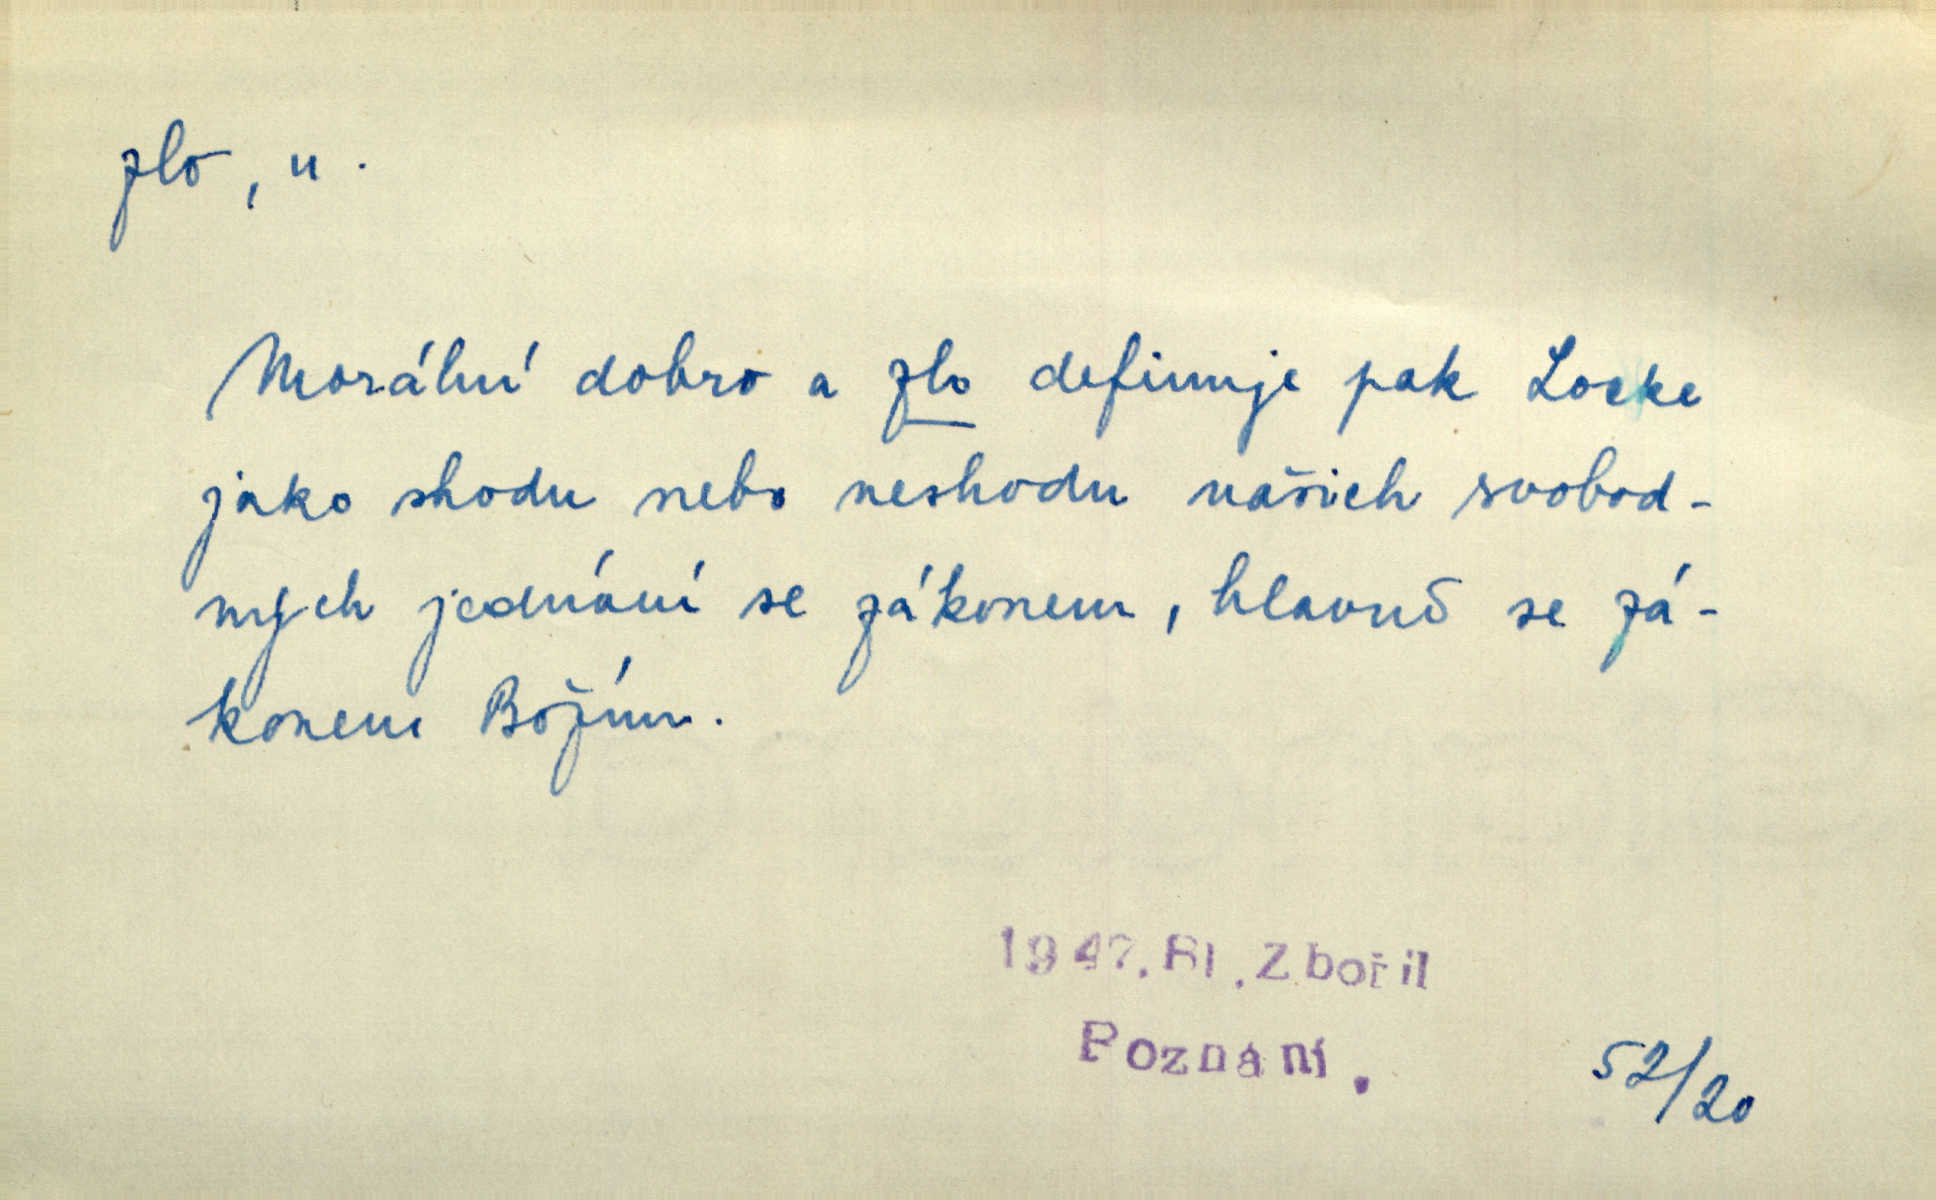 zlo, n.
Morální dobro a zlo definuje pak Locke
jako shodu nebo neshodu našich svobod-
ných jednání se zákonem, hlavně se zá-
konem Božím.
1947. Bl. Zbořil
Poznání.
52/20